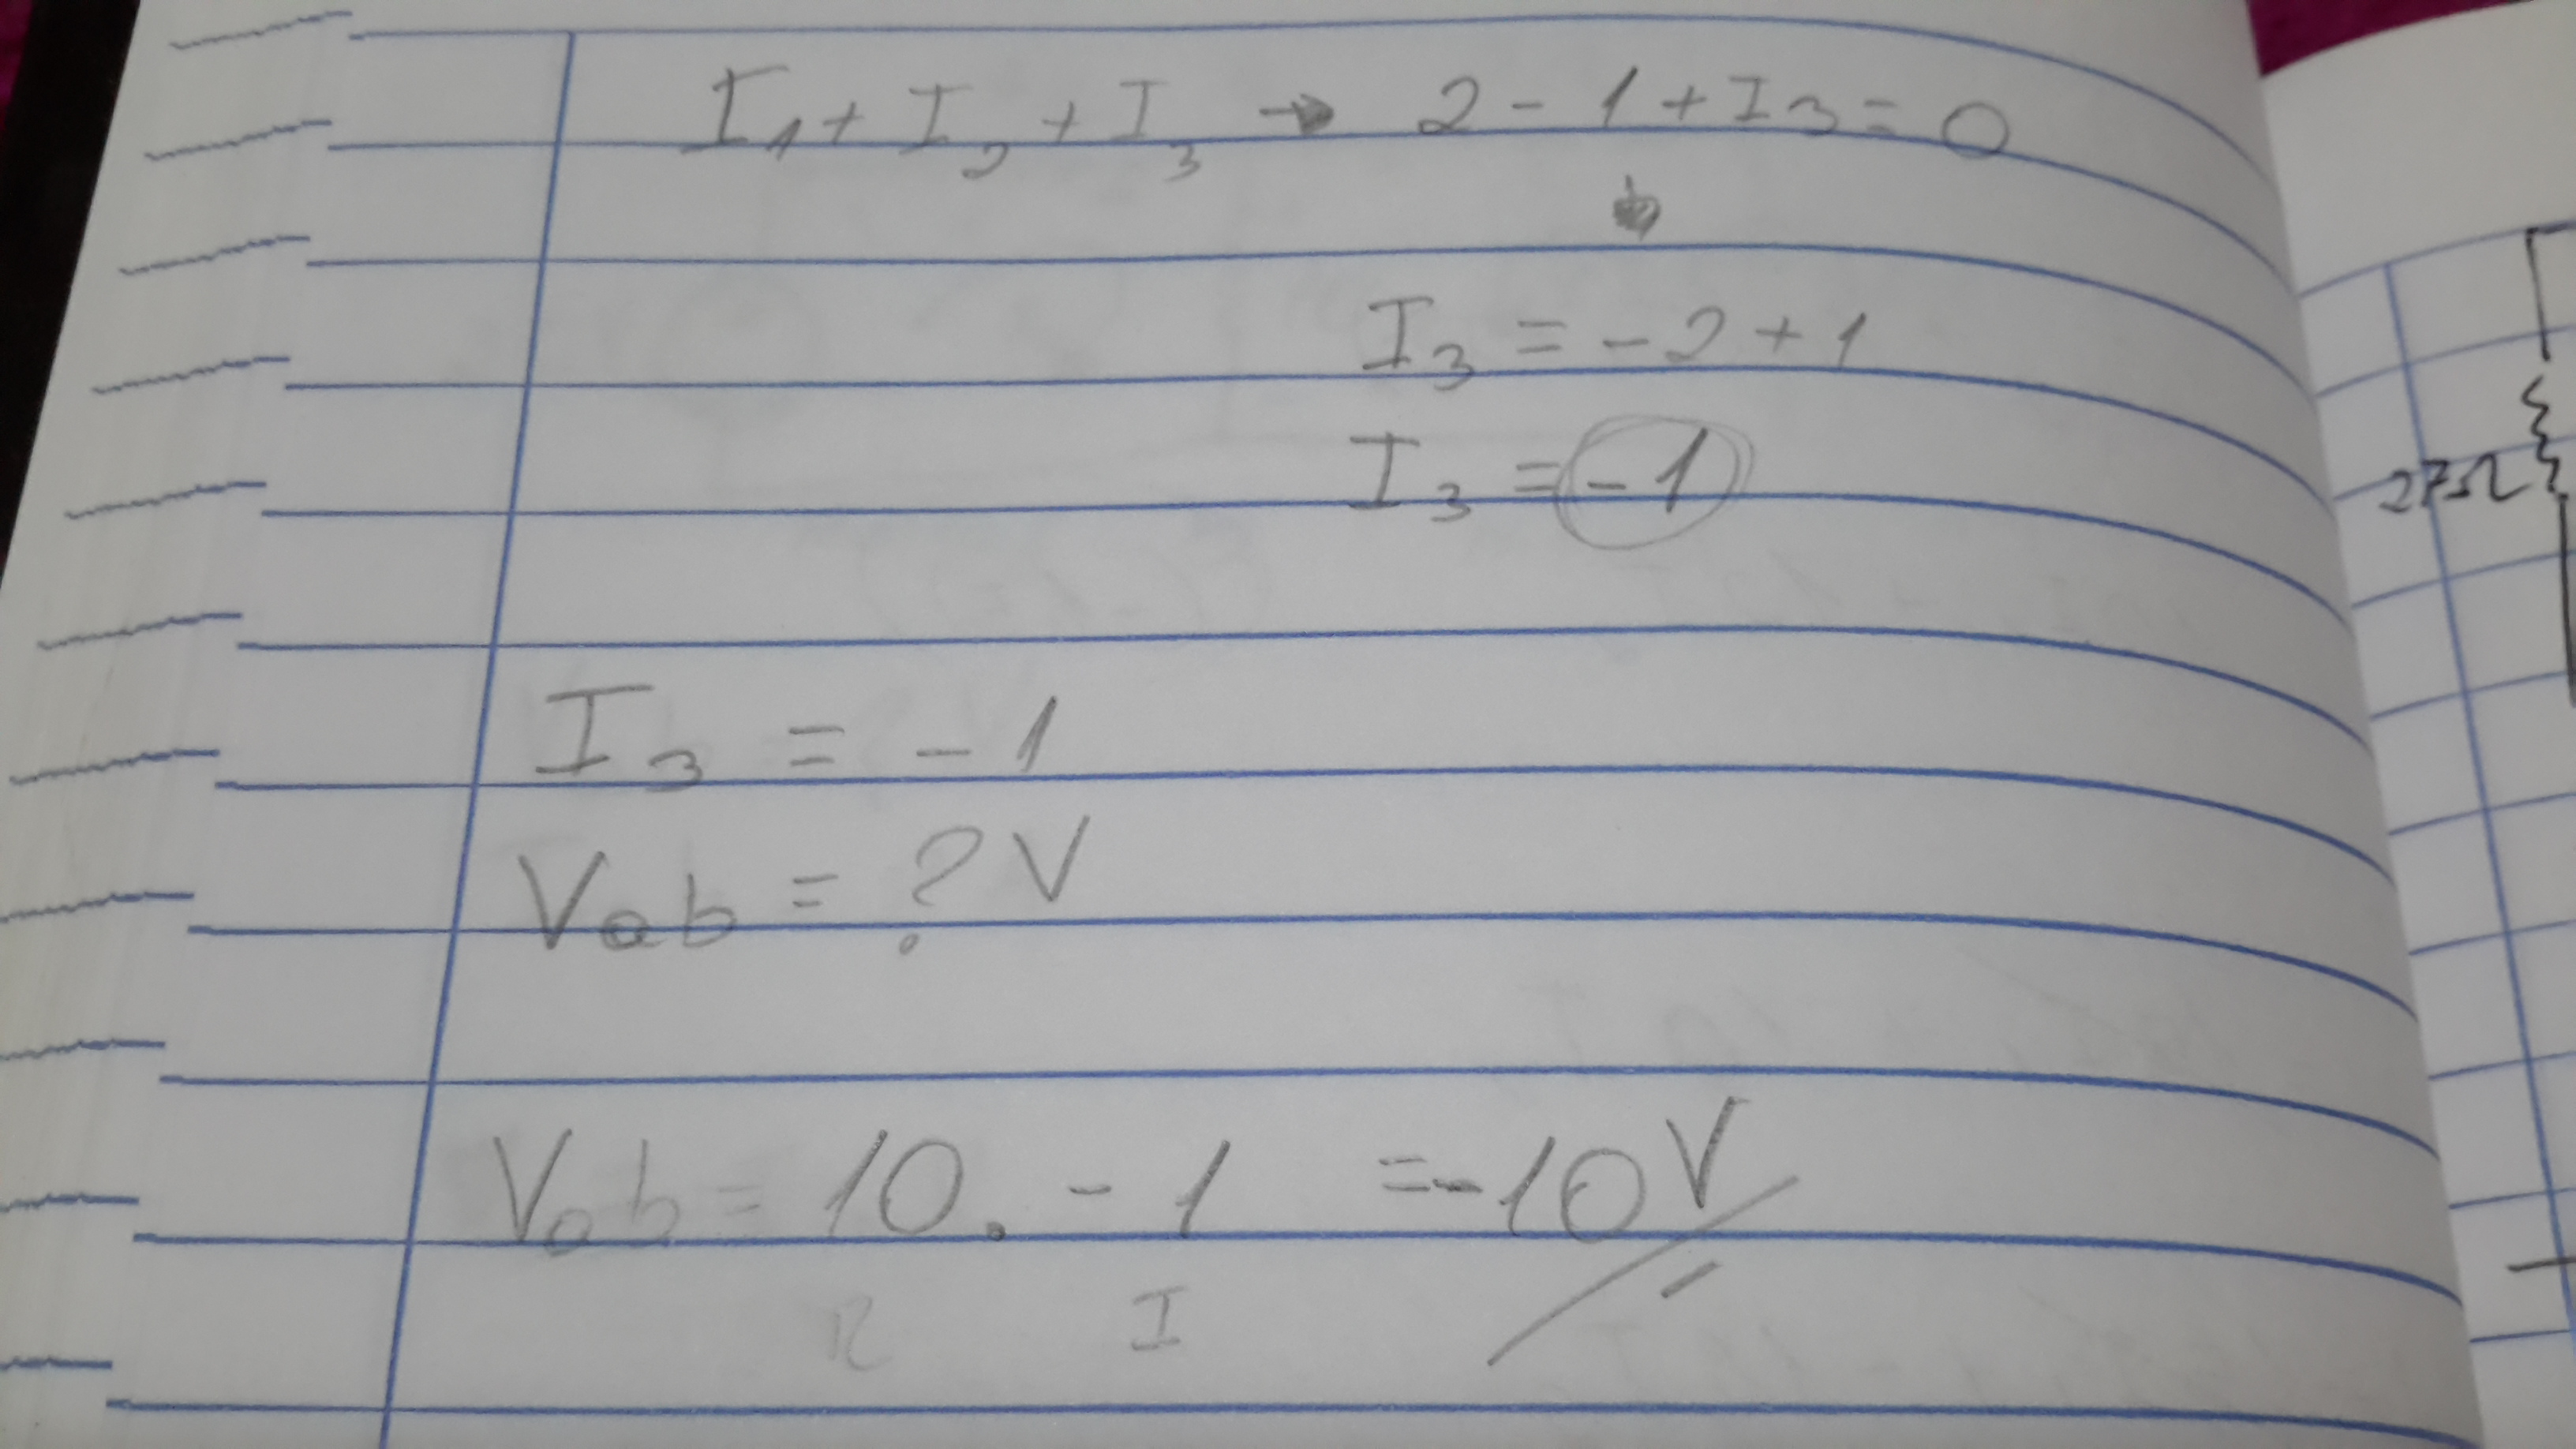 I₁ + I₂ + I₃ → 2 - 1 + I₃ = 0
I₃ = -2 + 1
I₃ = -1
I₃ = -1
Vab = ? V
Vab = 10 . -1 = -10V
R I
27Ω